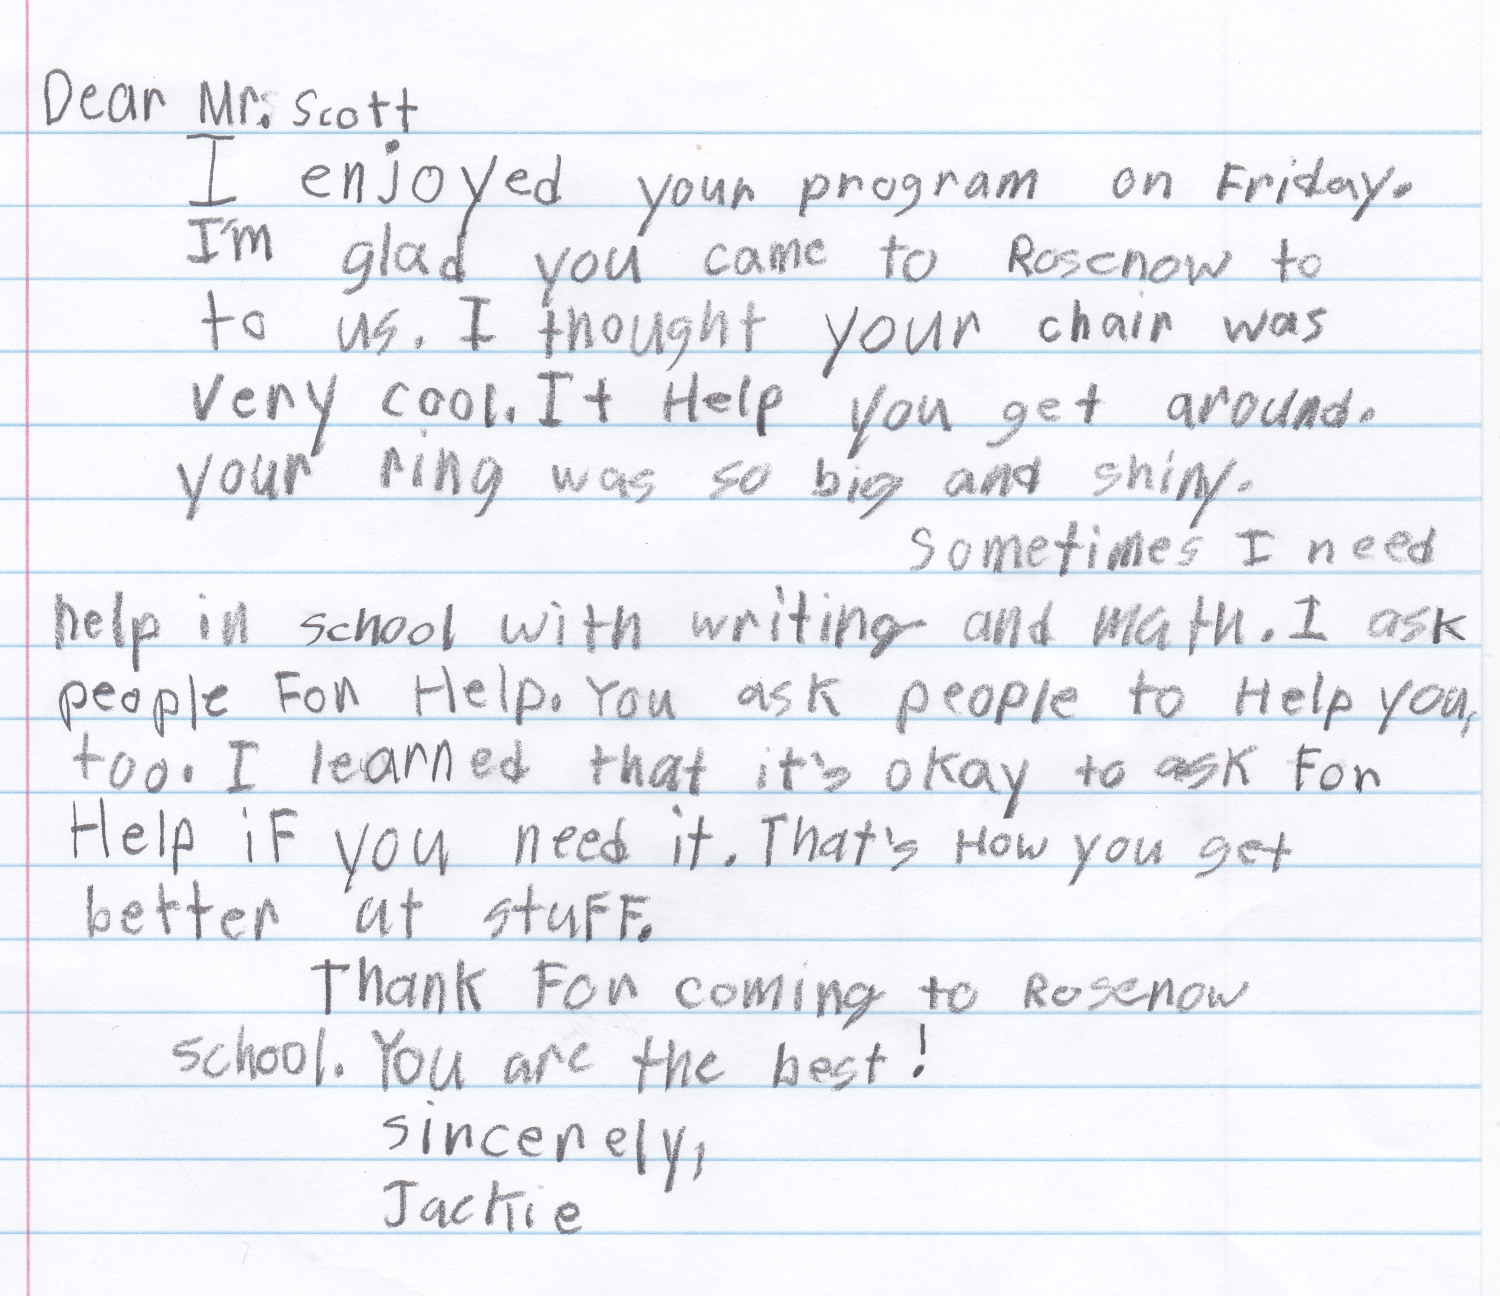 Dear Mr. Scott
I enjoyed your program on Friday.
I'm glad you came to Rosenow to
to us. I thought your chair was
very cool. It Help you get around.
your ring was so big and shiny.
sometimes I need
help in school with writing and math. I ask
people For Help. You ask people to Help you,
too. I learned that it's okay to ask For
Help iF you need it. That's How you get
better at stuFF.
Thank For coming to Rosenow
school. You are the best!
sincerely,
Jackie